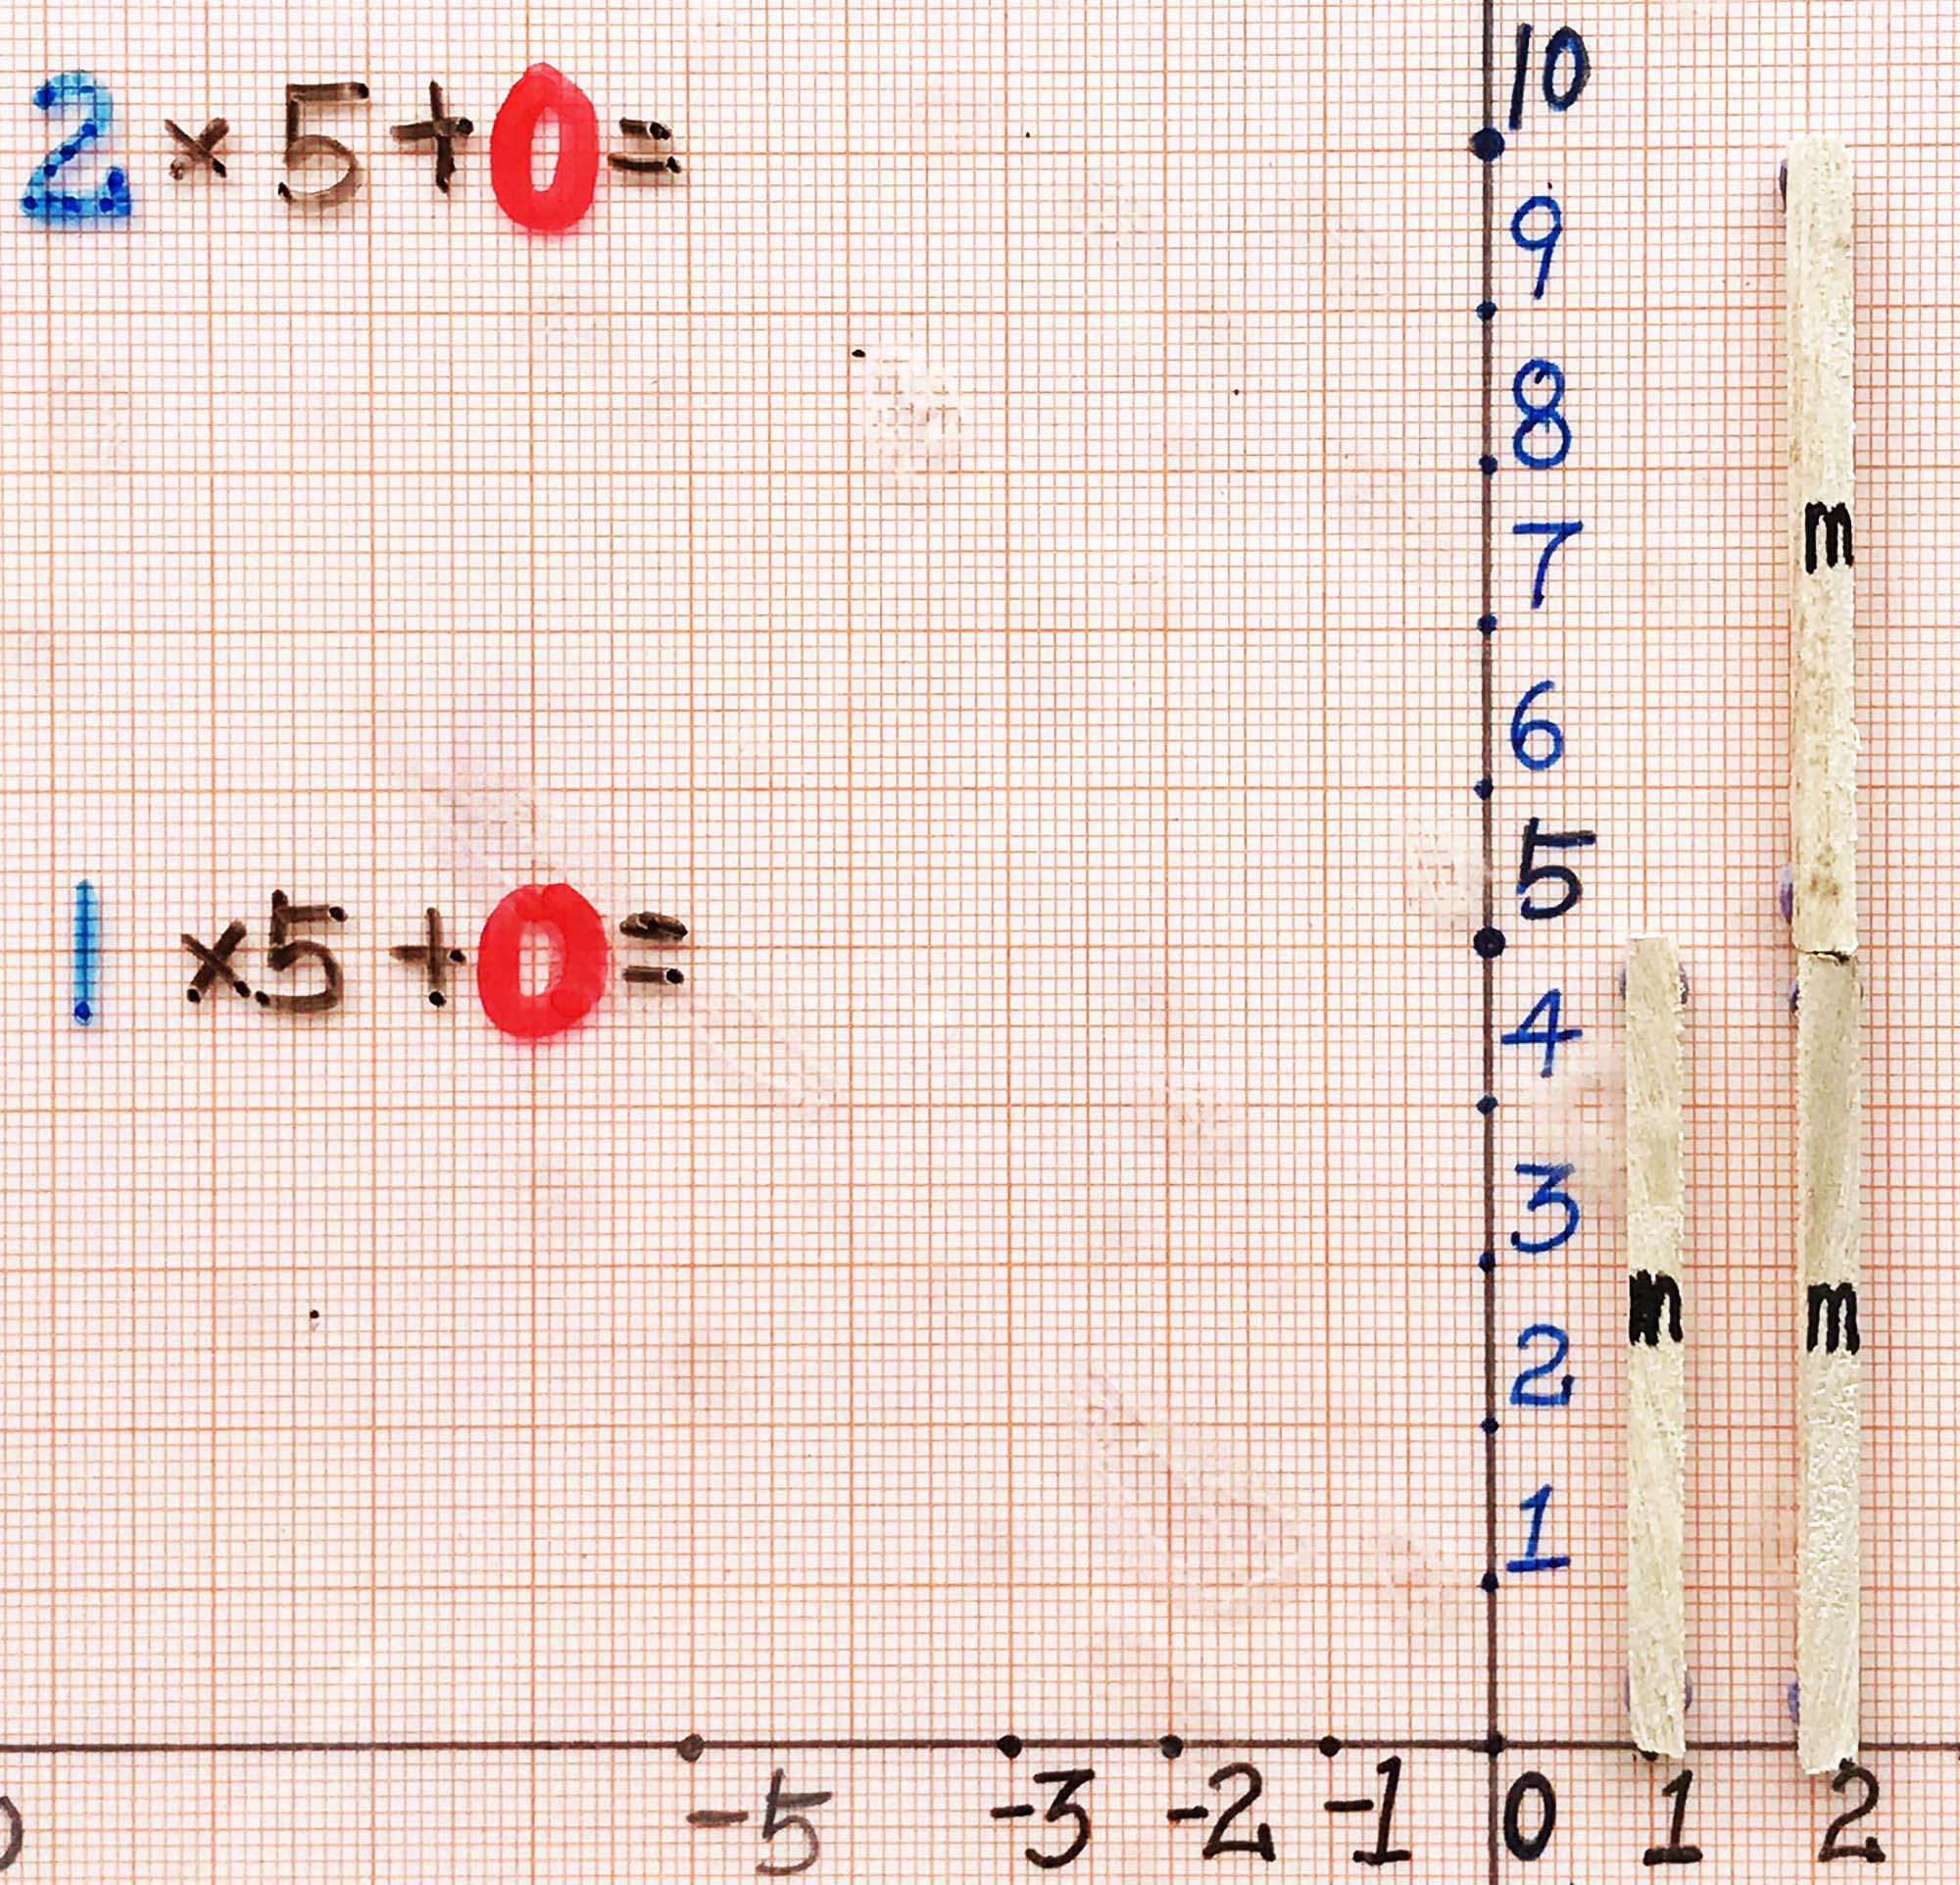 2 × 5 + 0 =
1 × 5 + 0 =
10
9
8
7
6
5
4
3
2
1
m
m
m
-5 -3 -2 -1 0 1 2